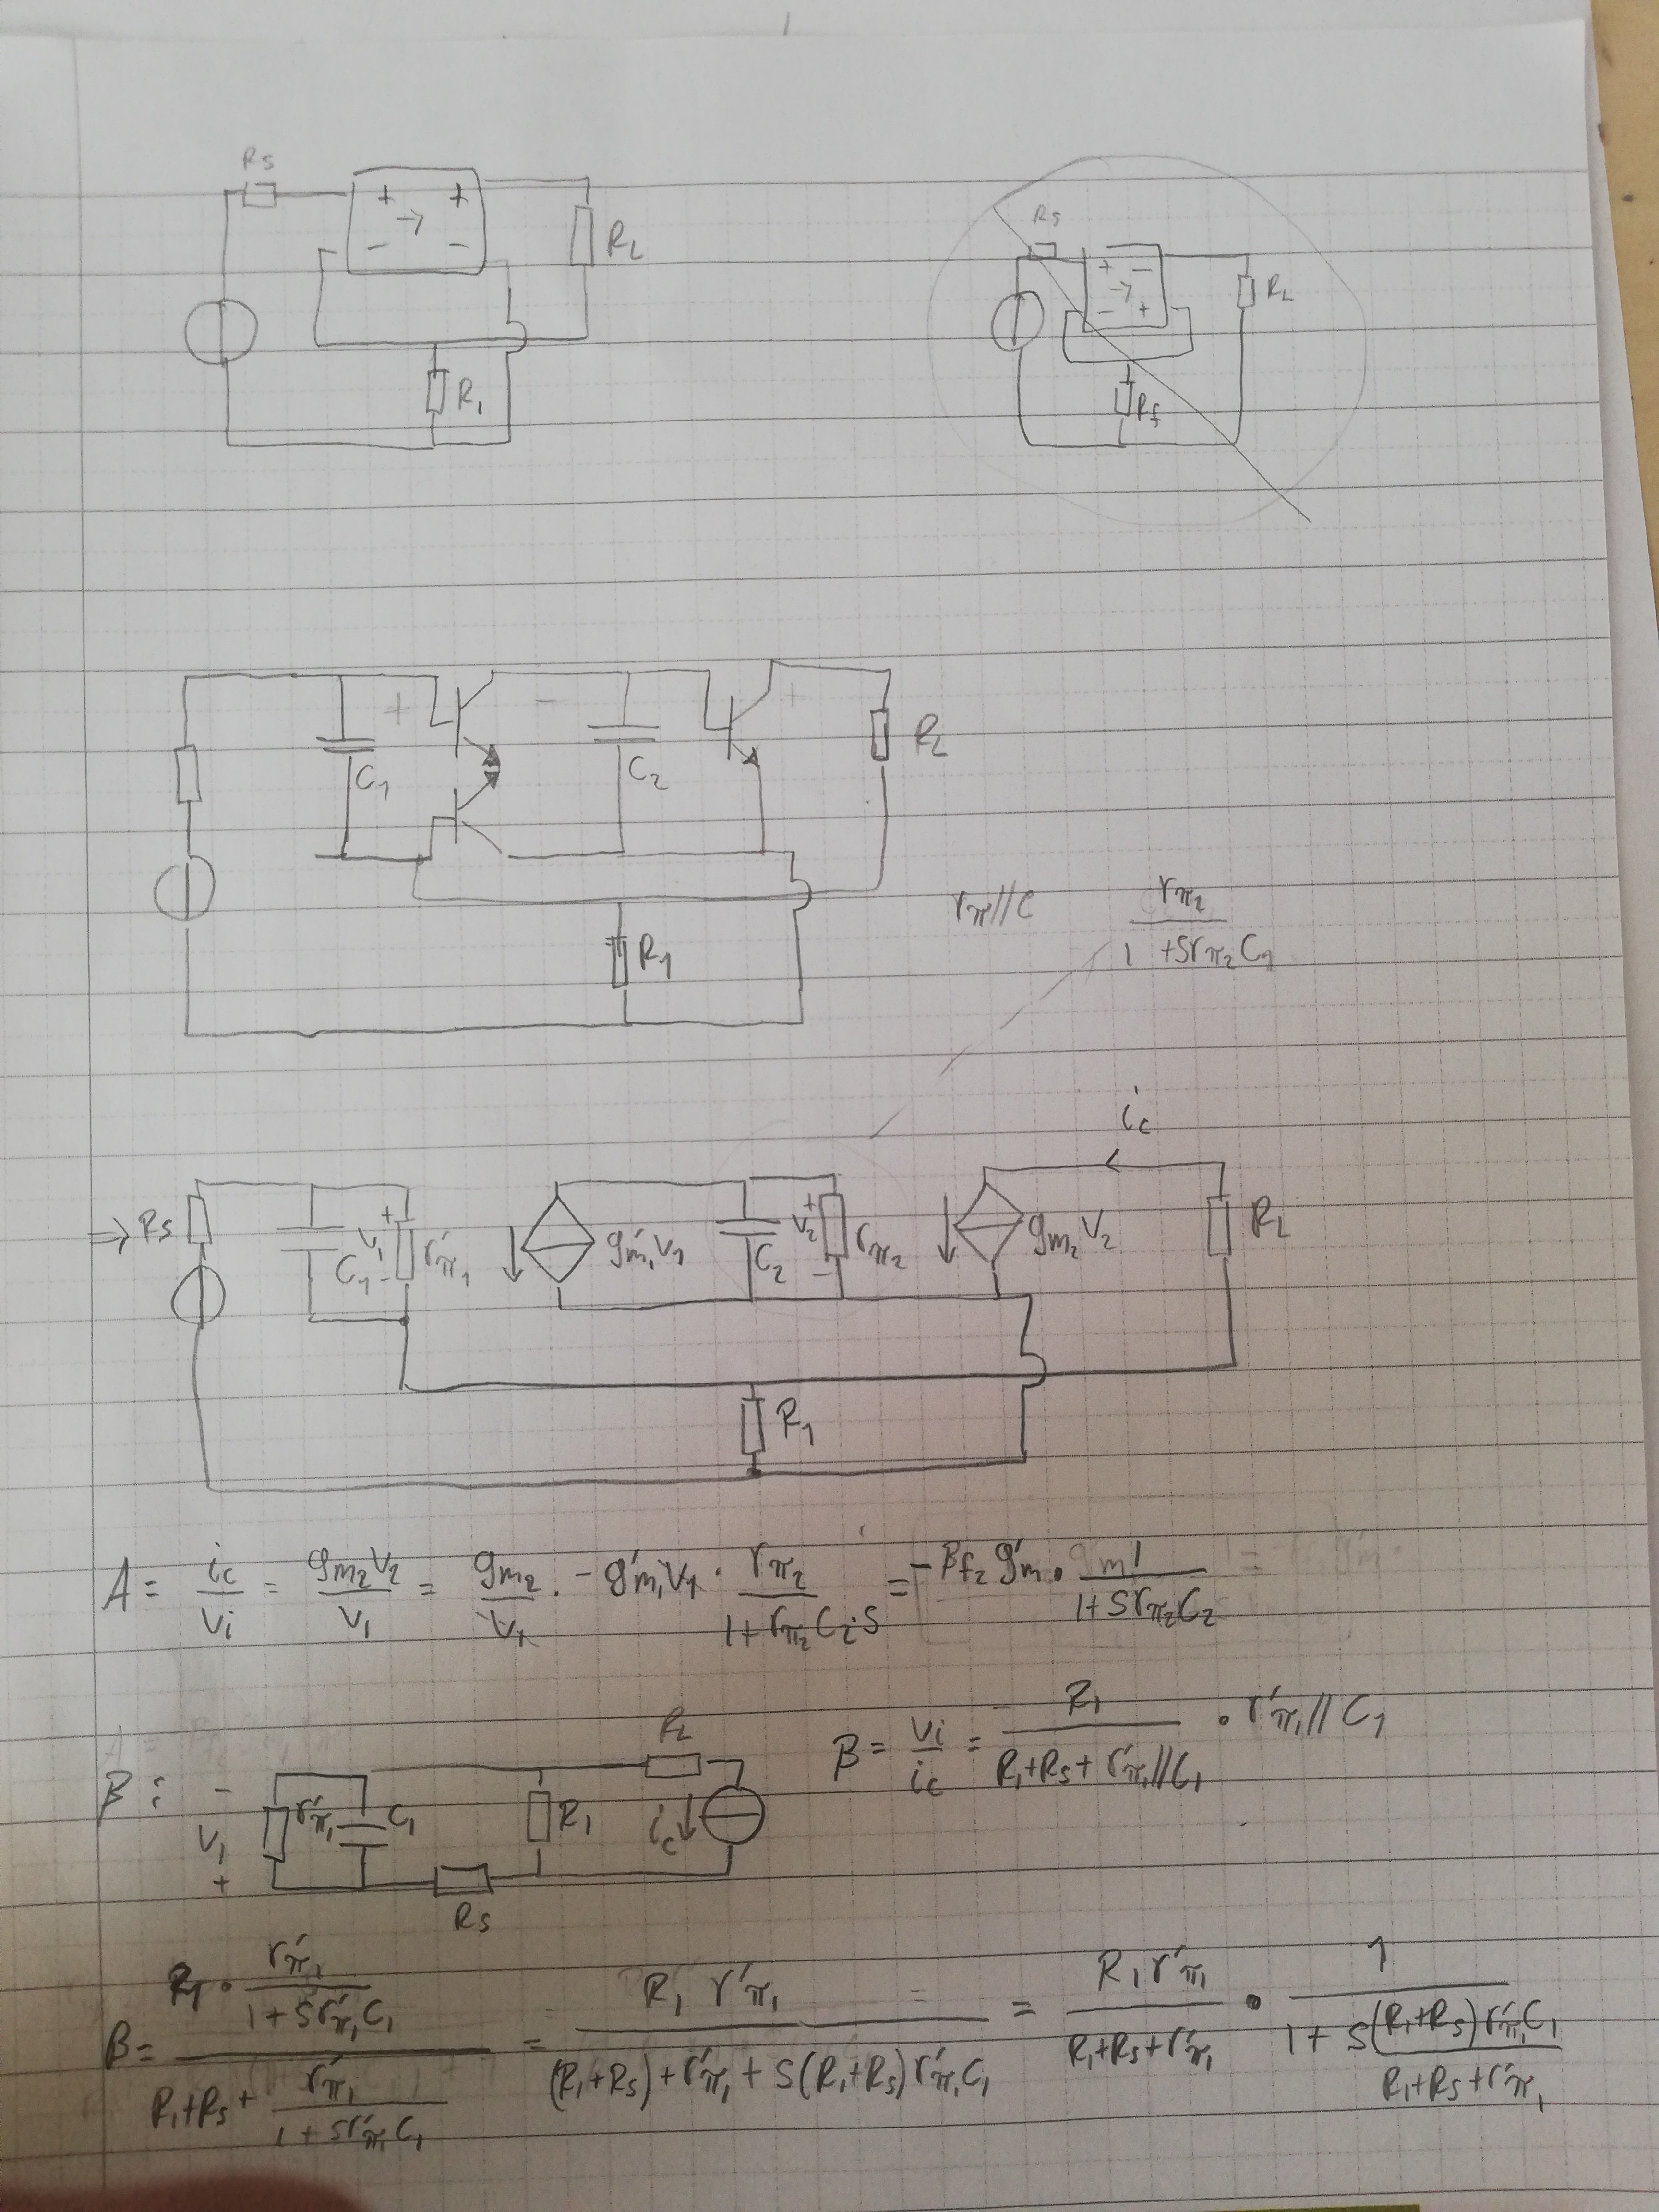 Rs
+ +
→
- -
RL
R1
Rs
+ -
→
- +
RL
Rf
+ - +
C1
C2
RL
R1
rπ//C
rπ2 / (1 + s rπ2 C1)
ic
⇒ Rs
C1
+ v1 -
r'π1
g'm1 v1
C2
+ v2 -
rπ2
gm2 v2
RL
R1
A = ic/vi = gm2 v2 / v1 = gm2/v1 · - g'm1 v1 · rπ2 / (1 + rπ2 C2 · s) = -βf2 g'm · 1 / (1 + s rπ2 C2)
β:
- v1 +
r'π1
C1
R1
RL
ic ↓
Rs
β = vi/ic = R1 / (R1+Rs+r'π1//C1) · r'π1//C1
β = (R1 · r'π1 / (1 + s r'π1 C1)) / (R1+Rs+ r'π1 / (1 + s r'π1 C1)) = R1 r'π1 / ((R1+Rs) + r'π1 + s(R1+Rs) r'π1 C1) = R1 r'π1 / (R1+Rs+r'π1) · 1 / (1 + s (R1+Rs) r'π1 C1 / (R1+Rs+r'π1))